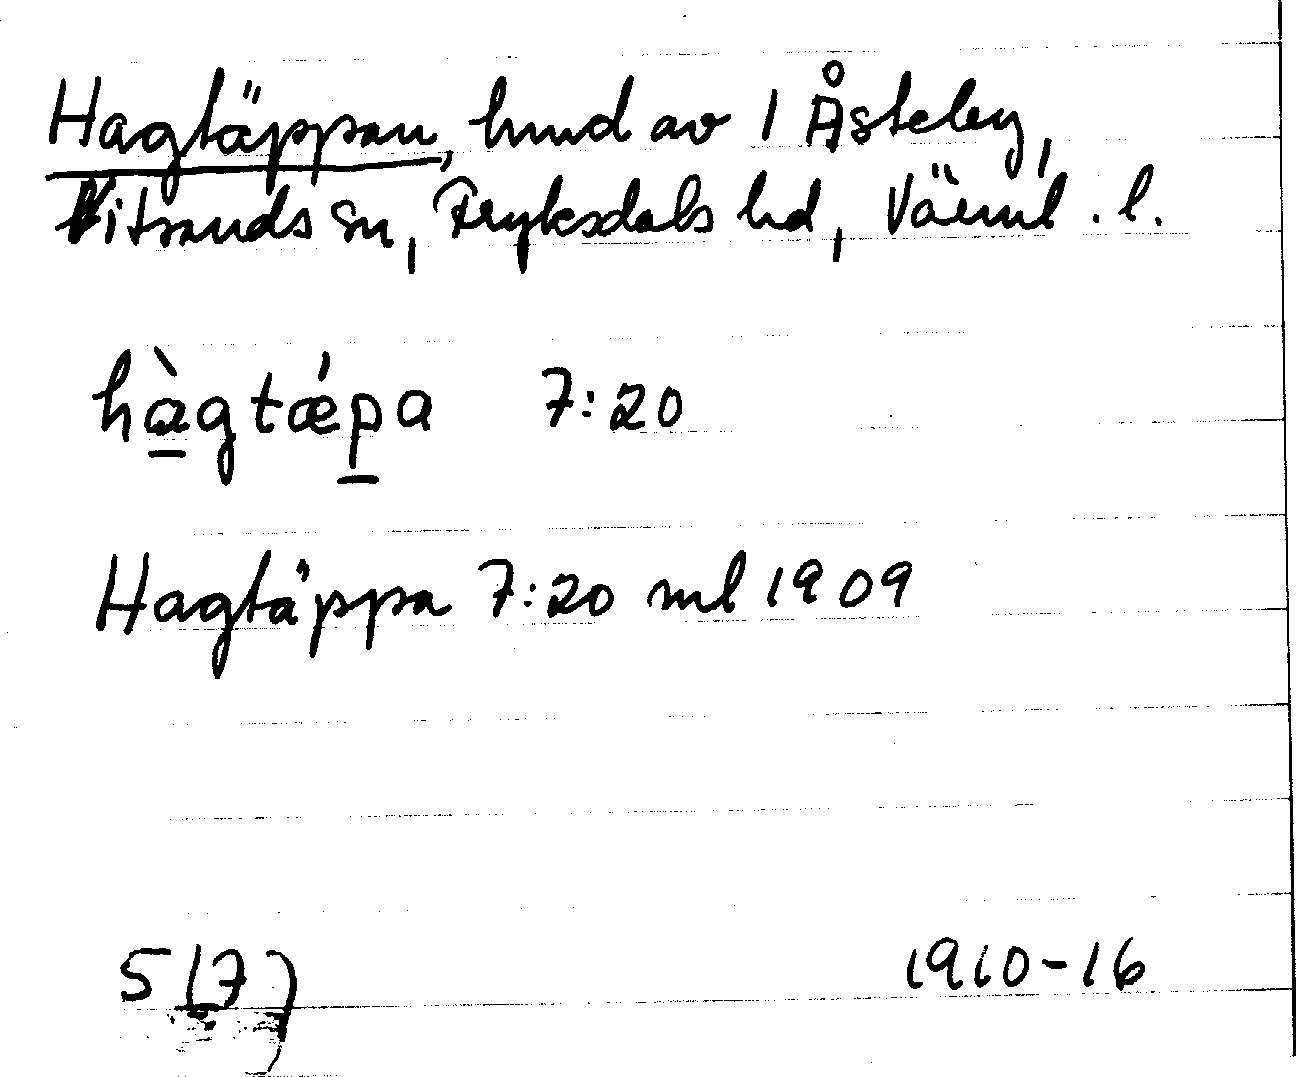 Hagtäppan, hmd av 1 Åsteby,
Vitsands sn, Fryksdals hd, Värml. l.
hàgtǽpa 7:20
Hagtäppa 7:20 ml 1909
5(7) 1910-16